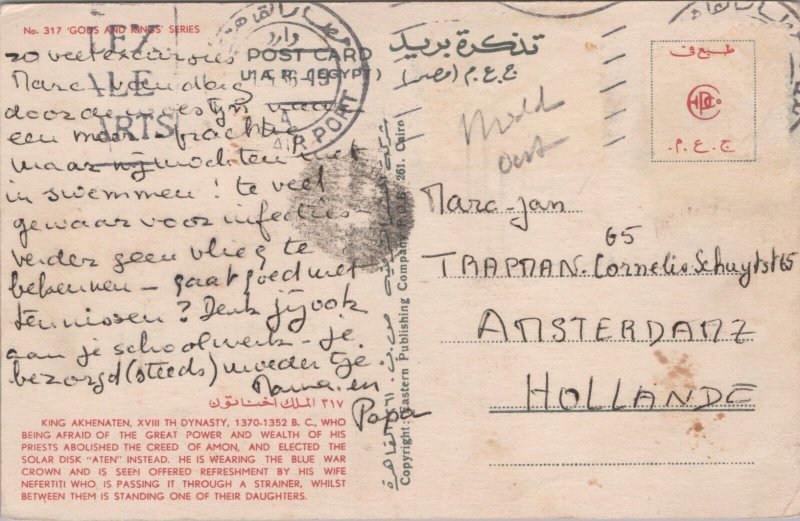 No. 317 'GODS AND KINGS' SERIES
POST CARD
U.A.R. (EGYPT)
تذكرة بريد
ج.ع.م (مصر)
طبع في
ج.ع.م.
PORT
20 veel excursies
Marc vandaag
door de woestijn naar
een meer - prachtig
maar wij mochten niet
in swemmen! te veel
gevaar voor infecties
verder geen vlieg te
bekennen - gaat goed met
tennissen? Denk jij ook
aan je schoolwerk - je
bezorgd (steeds) moedertje
Mama en
Papa
Marc-Jan
65
TRAPMAN. Cornelis Schuytst 65
AMSTERDAM Z
HOLLANDE
٣١٧ الملك اخناتون
KING AKHENATEN, XVIII TH DYNASTY, 1370-1352 B. C., WHO
BEING AFRAID OF THE GREAT POWER AND WEALTH OF HIS
PRIESTS ABOLISHED THE CREED OF AMON, AND ELECTED THE
SOLAR DISK "ATEN" INSTEAD. HE IS WEARING THE BLUE WAR
CROWN AND IS SEEN OFFERED REFRESHMENT BY HIS WIFE
NEFERTITI WHO IS PASSING IT THROUGH A STRAINER, WHILST
BETWEEN THEM IS STANDING ONE OF THEIR DAUGHTERS.
Copyright: Eastern Publishing Company, P.O.B. 261. Cairo